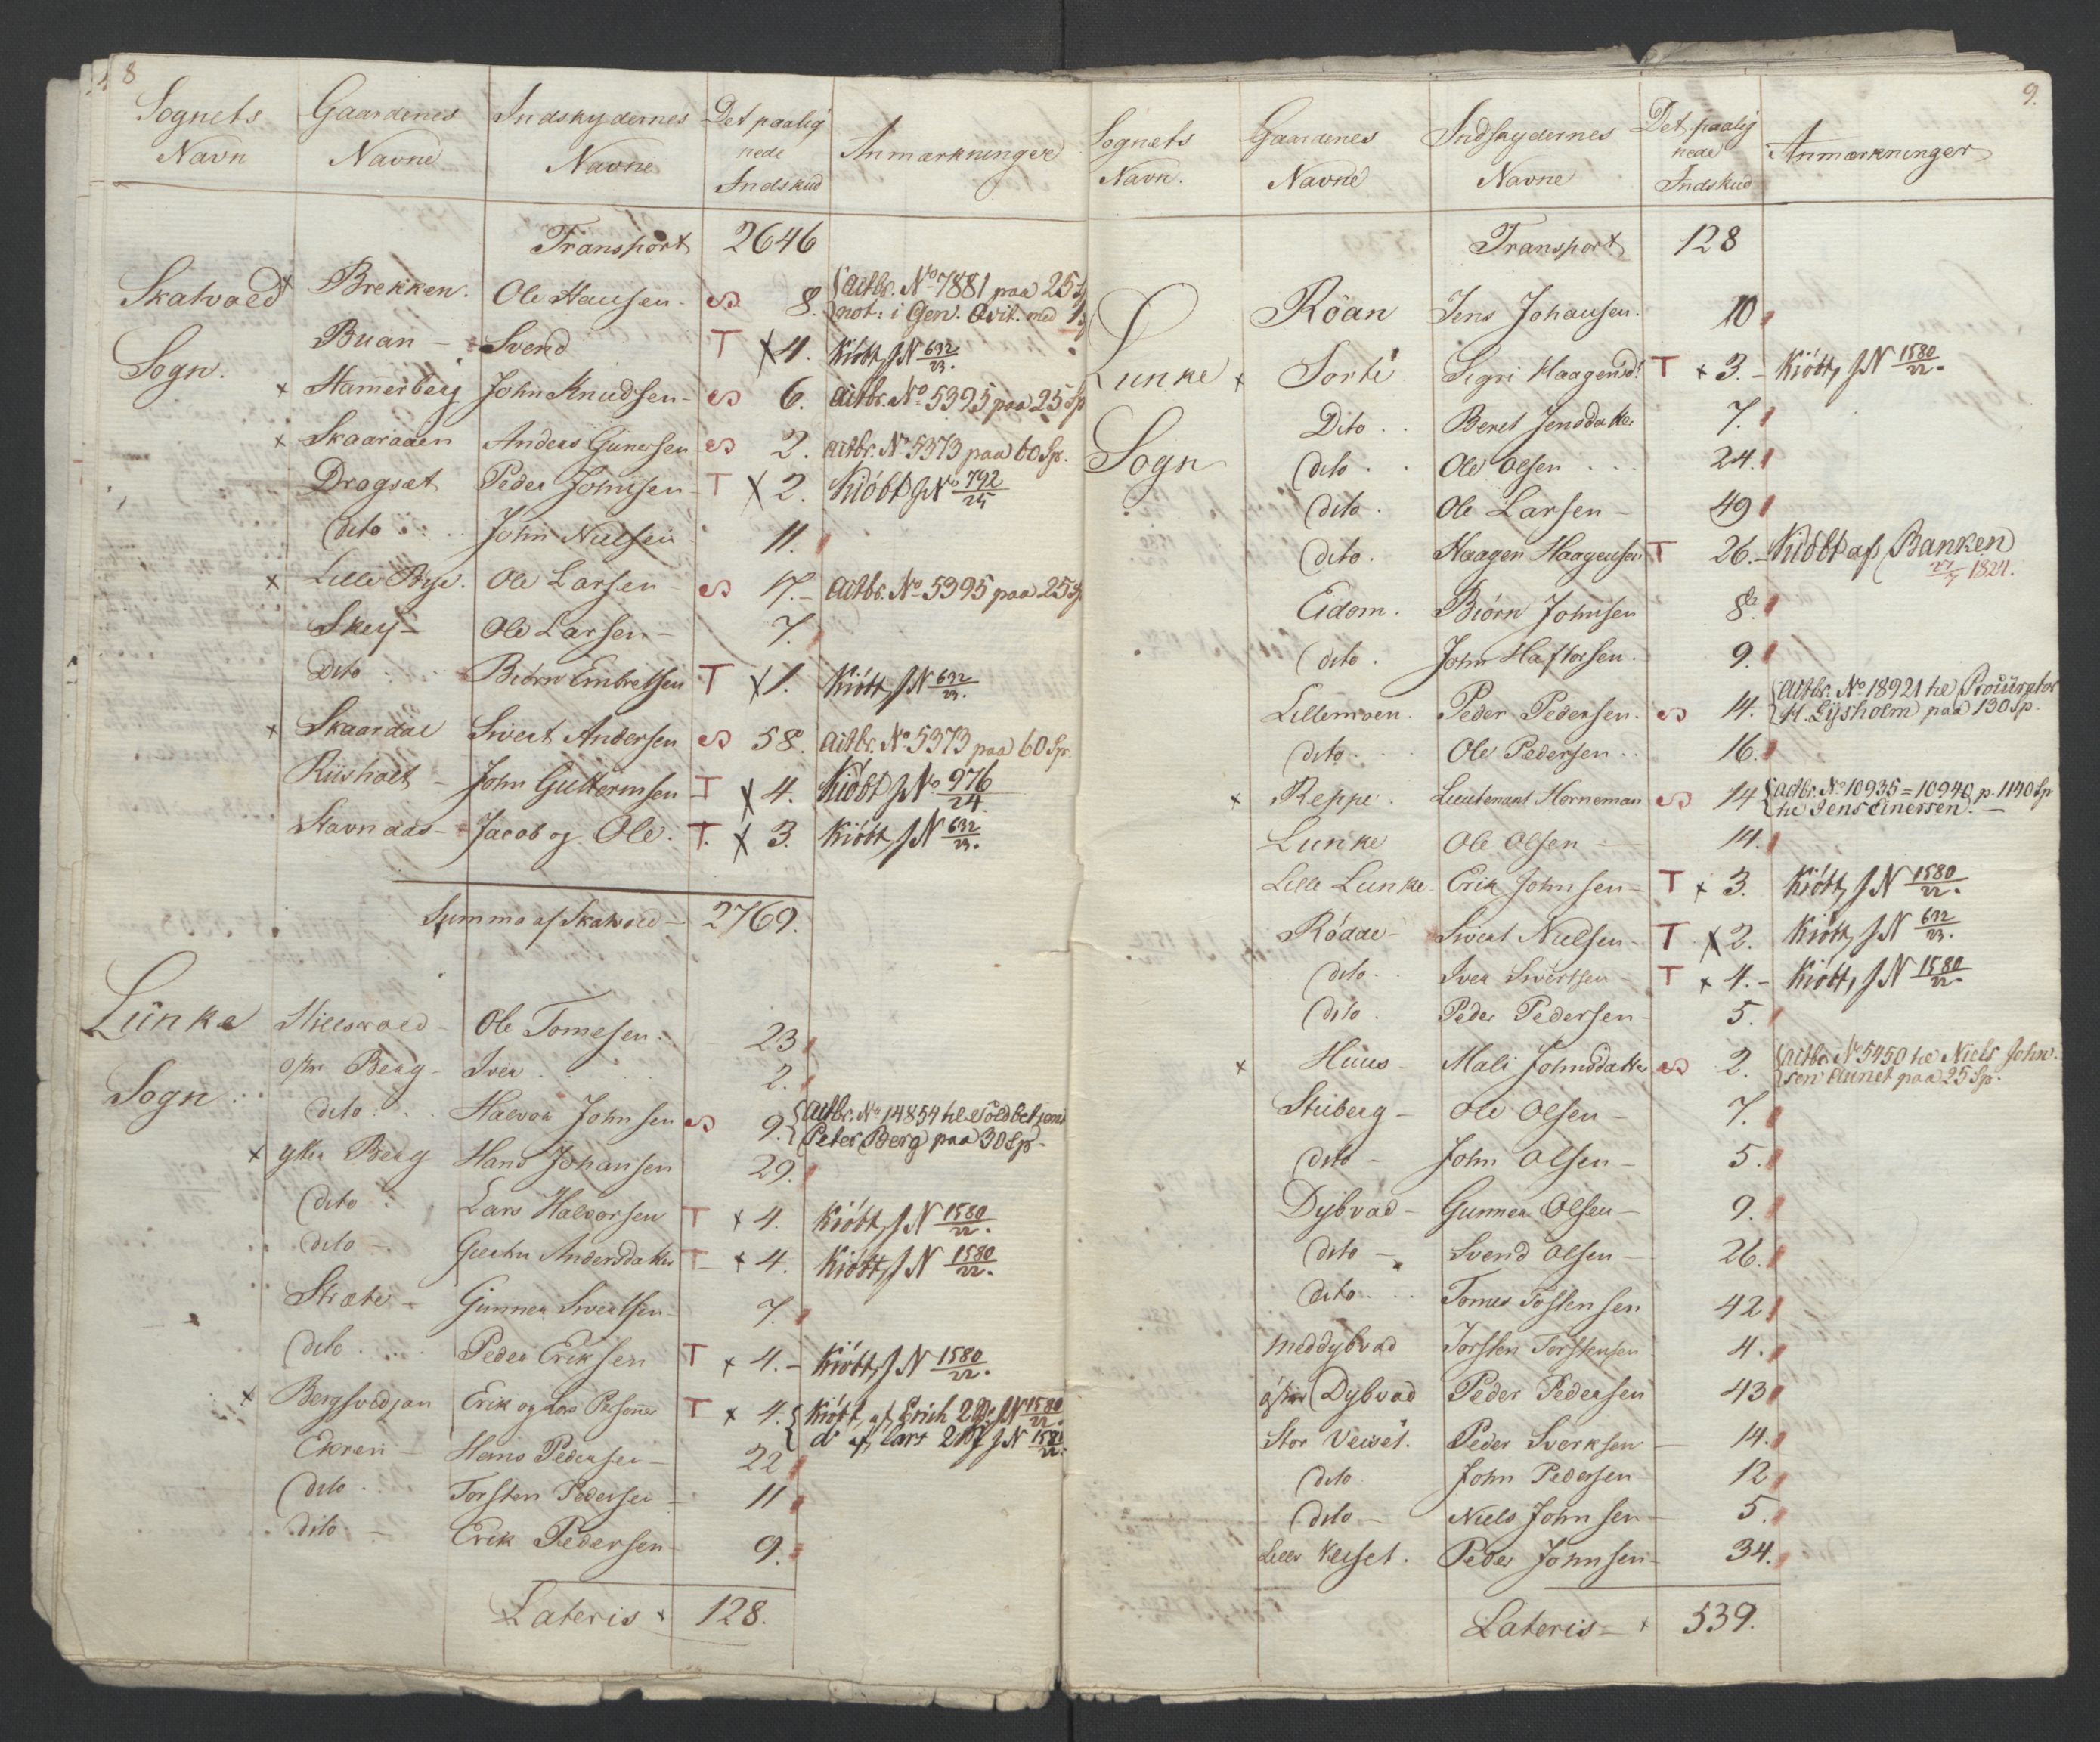 8
Sognets Navn | Gaardenes Navne | Indskydernes Navne | Det paalignede Indskud | Anmærkninger
Transport 2646
Skatvold Sogn. x Brekken. Ole Hansen - S 8. {Actbr. No 7881 paa 25 Sp not: i Gen. Qvit. med
Buan - Svend T x 4. Kiöbt, J N 632/23.
x Hamerberg John Knudsen - S 6. Actbr. No 5395 paa 25 Sp
x Skaaraaen Anders Gunersen S 2. Actbr. No 5373 paa 60 Sp.
Dragsæt Peder Johnsen - T x 2. Kiöbt J No 792/25
dito John Nielsen 11.
x Lille Bye. Ole Larsen - S 17. - Actbr. No 5395 paa 25 Sp
Skey - Ole Larsen - 7.
Dito Biörn Embretsen T x 1. Kiöbt, J N 632/23.
x Skaardal Sivert Andersen S 58. Actbr. No 5373 paa 60 Sp.
Riisholt - John Guttormsen - T x 4. Kiöbt J No 976/24.
Stavnaas - Jacob og Ole. T. x 3. Kiöbt J N 632/23.
Summa af Skatvold - 2769.
Lünke Sogn Hillsvold - Ole Tomesen 23
østr Berg - Iver 2.
dito Halvor Johnsen S 9. {Actbr. No 14854 til Toldbetjent Peter Berg paa 30 Sp.
x ytter Berg Hans Johansen 29.
dito Lars Halvorsen T x 4. Kiöbt, J N 1580/22.
dito - Andersdatter T x 4. Kiöbt, J N 1580/22.
Stræte - Gunner Sivertsen 7.
dito Peder Eriksen T x 4. - Kiöbt, J N 1580/22.
x Erik og Lars T x 4. {Kiöbt, af Erich 2 J N 1580/22.
do af Lars 2 J N 1580/22.
Ekren - Hans Pedersen - 22
dito Torsten Pedersen - 11
dito - Erik Pedersen - 9.
Lateris x 128.
9.
Sognets Navn. | Gaardenes Navne | Indskydernes Navne | Det paalignede Indskud | Anmærkninger
Transport 128
Lunke Sogn Röan Jens Johansen. 10
x Sorte Sigri Haagensd: T x 3. - Kiöbt, J N 1580/22.
Dito Beret Jensdatter 7.
dito Ole Olsen 24.
dito. Ole Larsen - 49
dito. Haagen Haagensen T 26. - Kiöbt af Banken 1824.
Eidom. Biörn Johnsen 8.
dito. John Haftorsen. 9.
Lillemoen. Peder Pedersen. S 14. {Actbr. No 18921 til Procurator H. Lysholm paa 130 Sp.
dito Ole Pedersen 16.
x Reppe. Lieutenant Horneman S 14 {Actbr. No 10935 = 10940 p. 1140 Sp til Jens Einersen. -
Lunke Ole Olsen - 14.
Lille Lunke. Erik Johnsen - T x 3. Kiöbt, J N 1580/22.
Rödde - Sivert Nielsen - T x 2. Kiöbt, J N 632/23.
dito. Iver Sivertsen T x 4. - Kiöbt, J N 1580/22.
dito. Peder Pedersen - 5.
x Huus. Mali Johnsdatter S 2. {Actbr. No 5450 til Niels Johnsen Aunet paa 25 Sp.
Stuberg - Ole Olsen - 7.
dito - John Olsen - 5.
Dybvad - Gunner Olsen - 9.
dito - Svend Olsen - 26.
dito Tomes Tostensen 42
meddybvad Torsten Torstensen 4.
østr Dybvad Peder Pedersen 43
Stor Veiset. Peder Sverksen - 14.
dito John Pedersen 12
dito - Niels Johnsen - 5.
Lille Veiset. Peder Johnsen - 34.
Lateris - x 539.